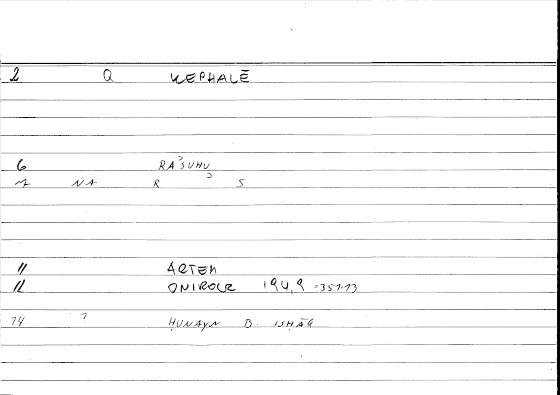 2 Q KEPHALĒ
6 RAʾSUHU
1 NA R ʾ S
11 ARTEM
12 ONIROCR 194,9 =351,13
14 ? ḤUNAYN B. ISḤĀQ